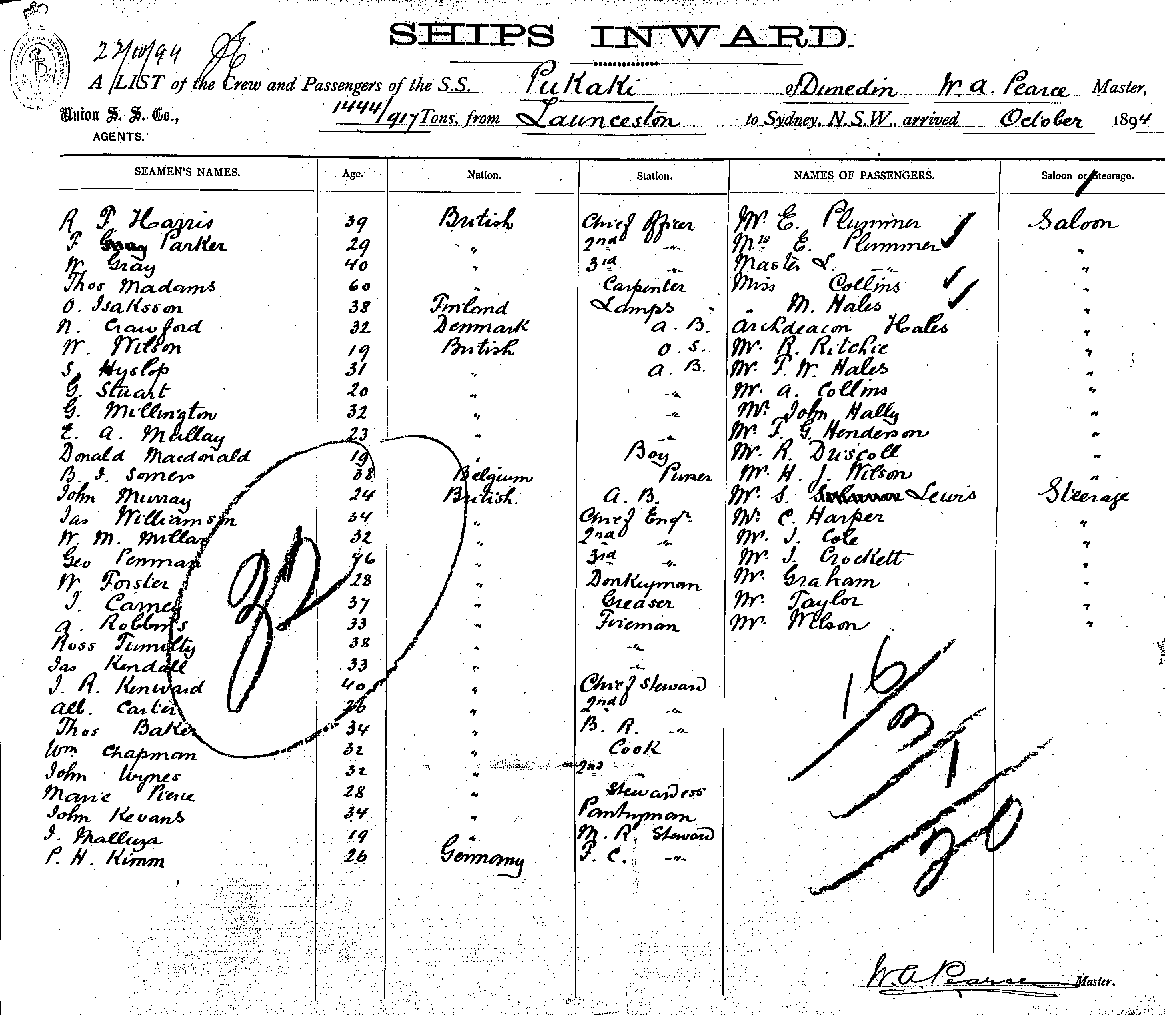 SHIPS INWARD.
27/10/94
A LIST of the Crew and Passengers of the S.S. Pukaki of Dunedin W. A. Pearce Master,
Union S. S. Co., AGENTS. 1444/917 Tons, from Launceston to Sydney, N.S.W., arrived October 1894
SEAMEN'S NAMES. Age. Nation. Station. NAMES OF PASSENGERS. Saloon or Steerage.
R F Harris 39 British Chief Officer Mr. E. Plummer Saloon
F Parker 29 " 2nd " Mrs E. Plummer "
W Gray 40 " 3rd " Master L. " "
Thos Madams 60 " Carpenter Miss Collins "
O. Isaksson 38 Finland Lamps " M. Hales "
N. Crawford 32 Denmark A. B. Archdeacon Hales "
W. Wilson 19 British O. S. Mr. R. Ritchie "
S. Hyslop 31 " A. B. Mr. F. W. Hales "
G. Stuart 20 " " Mr. A. Collins "
G. Millington 32 " " Mr. John Hally "
E. A. Mullay 23 " " Mr. F. G. Henderson "
Donald Macdonald 19 " Boy Mr. R. Driscoll "
B. J. Somers 38 Belgium Purser Mr. H. J. Wilson "
John Murray 24 British A. B. Mr. S. Lewis Steerage
Jas Williamson 34 " Chief Engr. Mr. C. Harper "
W. M. Millar 32 " 2nd " Mr. J. Cole "
Geo Penman 46 " 3rd " Mr. J. Crockett "
W Forster 28 " Donkeyman Mr. Graham "
J. Carnes 37 " Greaser Mr. Taylor "
A. Robbins 33 " Fireman Mr. Wilson "
Ross Tumilty 38 " "
Jas Kendall 33 " "
J. R. Kenward 40 " Chief Steward
Alb. Carter 26 " 2nd "
Thos Baker 34 " B. R. "
Wm Chapman 32 " Cook
John Wynes 32 " 2nd "
Marie Pierce 28 " Stewardess
John Kevans 34 " Pantryman
J. 19 " M. R. Steward
P. H. Kimm 26 Germany F. C. "
32
16
3
1
20
W A Pearce Master.